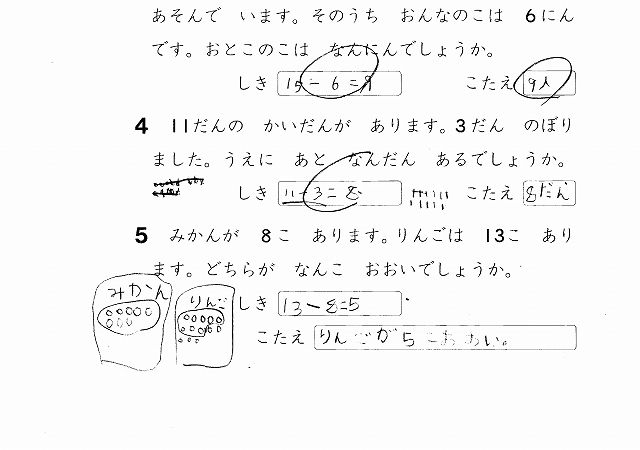 あそんで います。そのうち おんなのこは 6にん
です。おとこのこは なんにんでしょうか。
しき 15－6＝9 こたえ 9人
4 11だんの かいだんが あります。3だん のぼり
ました。うえに あと なんだん あるでしょうか。
しき 11－3＝8 こたえ 8だん
5 みかんが 8こ あります。りんごは 13こ あり
ます。どちらが なんこ おおいでしょうか。
みかん りんご しき 13－8＝5
こたえ りんごが5こおおい。